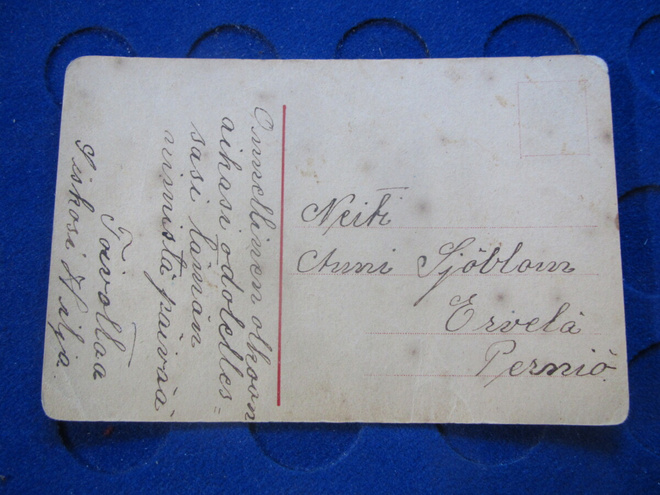 Onnellinen olkoon
aikasi odotelles=
sasi tämän
nimistä päivää
Toivottaa
Siskosi Hilja
Neiti
Anni Sjöblom
Ervelä
Perniö.